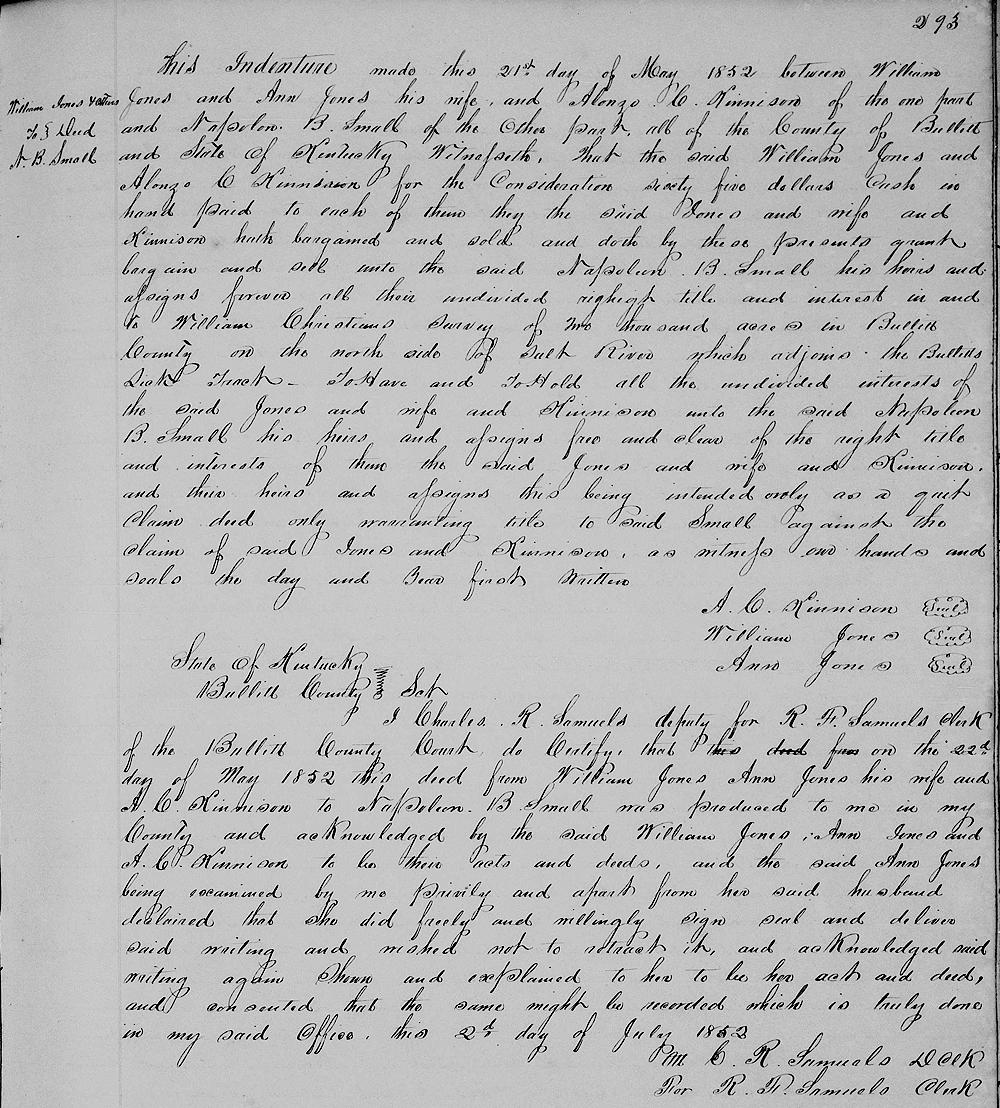 293
This Indenture made this 21st day of May 1852 between William
William Jones & others
To } Deed
N. B. Small
Jones and Ann Jones his wife, and Alonzo C. Kinnison of the one part
and Napolon. B. Small of the Other part, all of the County of Bullitt
and State Of Kentucky Witnesseth, That the said William Jones and
Alonzo C Kinnison for the Consideration sixty five dollars Cash in
hand paid to each of them they the said Jones and wife and
Kinnison hath bargained and sold and doth by these presents grant
bargain and sell unto the said Napoleon. B. Small his heirs and
assigns forever all their undivided right title and interest in and
to William Christians survey of Two thousand acres in Bullitt
County on the north side of Salt River which adjoins the Bullitts
Lick Tract - To Have and To Hold all the undivided interests of
the said Jones and wife and Kinnison unto the said Napoleon
B. Small his heirs and assigns free and clear of the right title
and interests of them the said Jones and wife and Kinnison.
and their heirs and assigns this being intended only as a quit
Claim deed only warranting title to said Small against the
claim of said Jones and Kinnison, as witness our hands and
seals the day and Year first Written
A. C. Kinnison (Seal)
William Jones (Seal)
Ann Jones (Seal)
State Of Kentucky
Bullitt County } Sct
I Charles. R. Samuels deputy for R. F. Samuels Clerk
of the Bullitt County Court do Certify, that this deed from on the 22d
day of May 1852 this deed from William Jones Ann Jones his wife and
A. C. Kinnison to Napoleon. B Small was produced to me in my
County and acknowledged by the said William Jones, Ann Jones and
A. C. Kinnison to be their acts and deeds, and the said Ann Jones
being examined by me privily and apart from her said husband
declaired that She did freely and willingly sign seal and deliver
said writing and wished not to retract it, and acknowledged said
writing again Shown and explained to her to be her act and deed,
and consented that the same might be recorded which is truly done
in my said Office, this 2d day of July 1852
C. R. Samuels D Clk
For R. F. Samuels Clerk